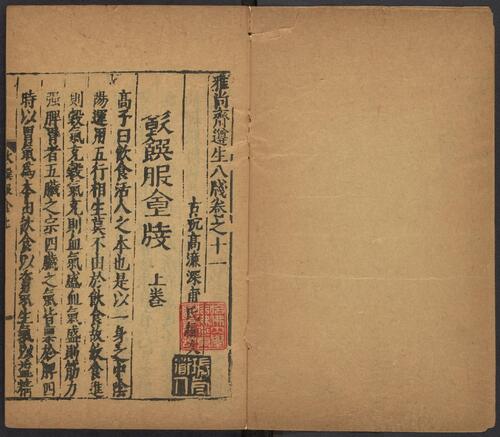 雅尚齋遵生八牋卷之十一
古杭高濂深甫氏編次
飲饌服食牋 上卷
高子曰飲食活人之本也是以一身之中陰
陽運用五行相生莫不由於飲食故飲食進
則穀氣充穀氣充則血氣盛血氣盛則筋力
强脾胃者五臟之宗四臟之氣皆稟於脾四
時以胃氣為本由飲食以資氣生氣以益精